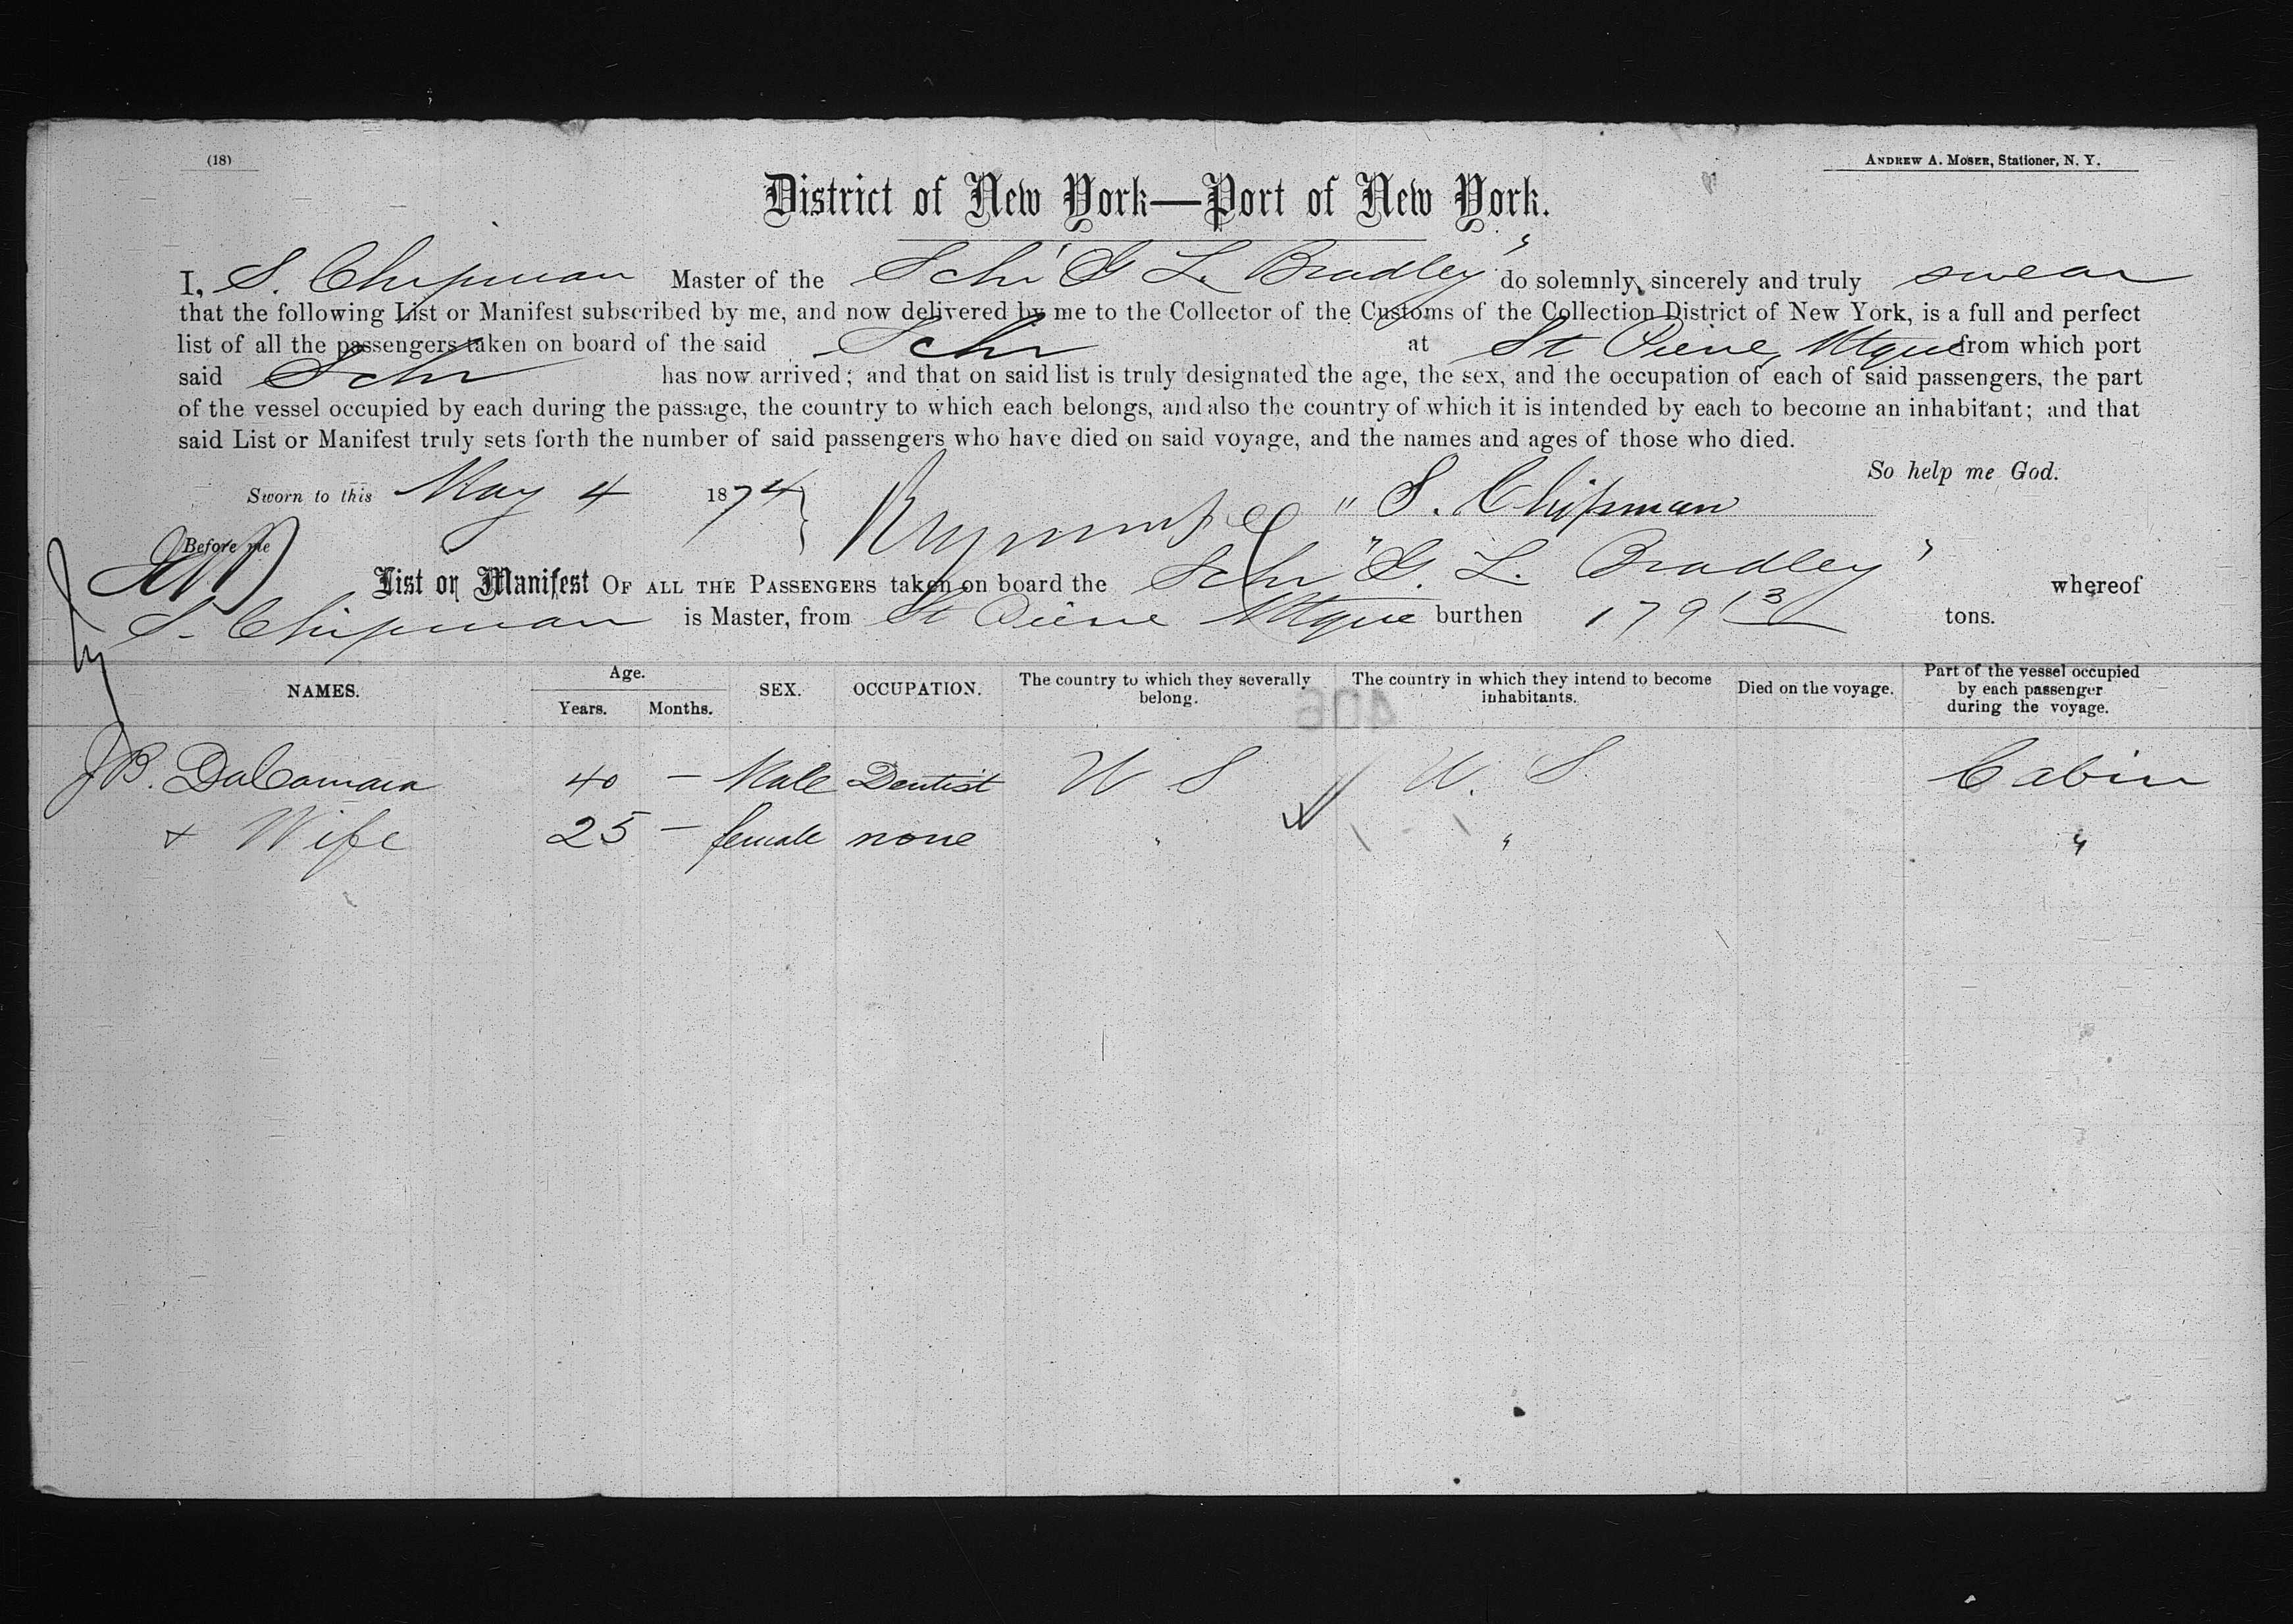 (18)
ANDREW A. MOSER, Stationer, N. Y.
District of New York—Port of New York.
I, S. Chipman Master of the Schr "G L. Bradley" do solemnly, sincerely and truly swear
that the following List or Manifest subscribed by me, and now delivered by me to the Collector of the Customs of the Collection District of New York, is a full and perfect
list of all the passengers taken on board of the said Schr at St Pierre, Mtque from which port
said Schr has now arrived; and that on said list is truly designated the age, the sex, and the occupation of each of said passengers, the part
of the vessel occupied by each during the passage, the country to which each belongs, and also the country of which it is intended by each to become an inhabitant; and that
said List or Manifest truly sets forth the number of said passengers who have died on said voyage, and the names and ages of those who died.
So help me God.
Sworn to this May 4 1874 } " S. Chipman
Before me
List or Manifest OF ALL THE PASSENGERS taken on board the Schr "G. L. Bradley" whereof
S. Chipman is Master, from St Pierre Mtque burthen 179 13/ tons.
NAMES. Age. Years. Months. SEX. OCCUPATION. The country to which they severally belong. The country in which they intend to become inhabitants. Died on the voyage. Part of the vessel occupied by each passenger during the voyage.
406
J B. DaCamara 40 — Male Dentist U S U. S. Cabin
+ Wife 25 — female none " " "